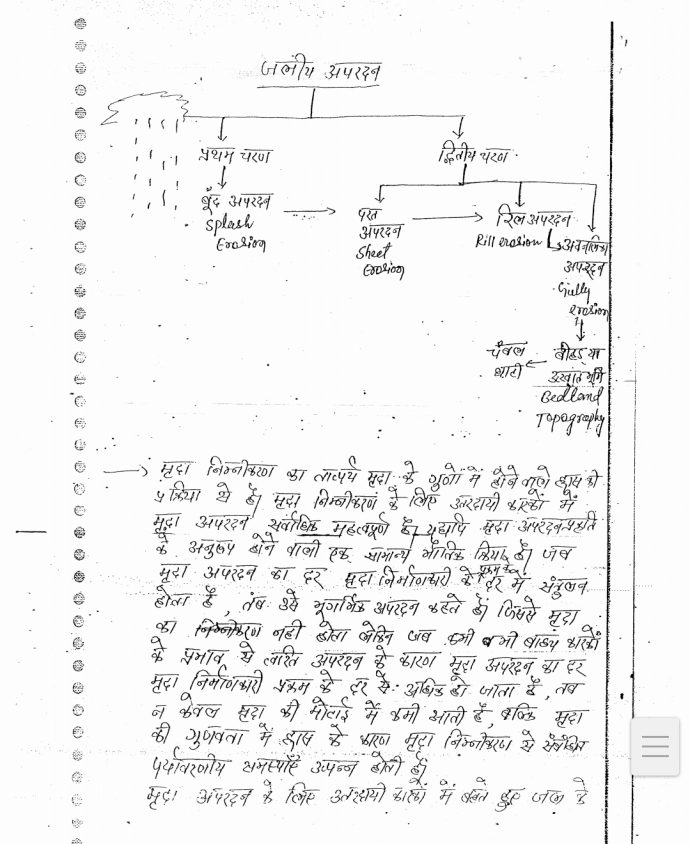 जलीय अपरदन
प्रथम चरण
द्वितीय चरण
बूँद अपरदन
Splash
Erosion
परत
अपरदन
Sheet
Erosion
रिल अपरदन
Rill erosion
अवनलिका
अपरदन
Gully
erosion
चंबल
घाटी
बीहड़ या
उत्खात भूमि
Bedland
Topography
मृदा निम्नीकरण का तात्पर्य मृदा के गुणों में होने वाले ह्रास की
प्रक्रिया से है। मृदा निम्नीकरण के लिए उत्तरदायी कारकों में
मृदा अपरदन सर्वाधिक महत्वपूर्ण है। यद्यपि मृदा अपरदन प्रकृति
के अनुरूप होने वाली एक सामान्य भौतिक क्रिया है। जब
मृदा अपरदन का दर मृदा निर्माणकारी प्रक्रम के दर में संतुलन
होता है, तब उसे भूगर्भिक अपरदन कहते हैं। जिससे मृदा
का निम्नीकरण नही होता लेकिन जब कभी कभी बाह्य कारकों
के प्रभाव से त्वरित अपरदन के कारण मृदा अपरदन का दर
मृदा निर्माणकारी प्रक्रम के दर से अधिक हो जाता है, तब
न केवल मृदा की मोटाई में कमी आती है, बल्कि मृदा
की गुणवता में ह्रास के कारण मृदा निम्नीकरण से संबंधित
पर्यावरणीय समस्याएँ उत्पन्न होती है।
मृदा अपरदन के लिए उतरदायी कारकों में बहते हुए जल के